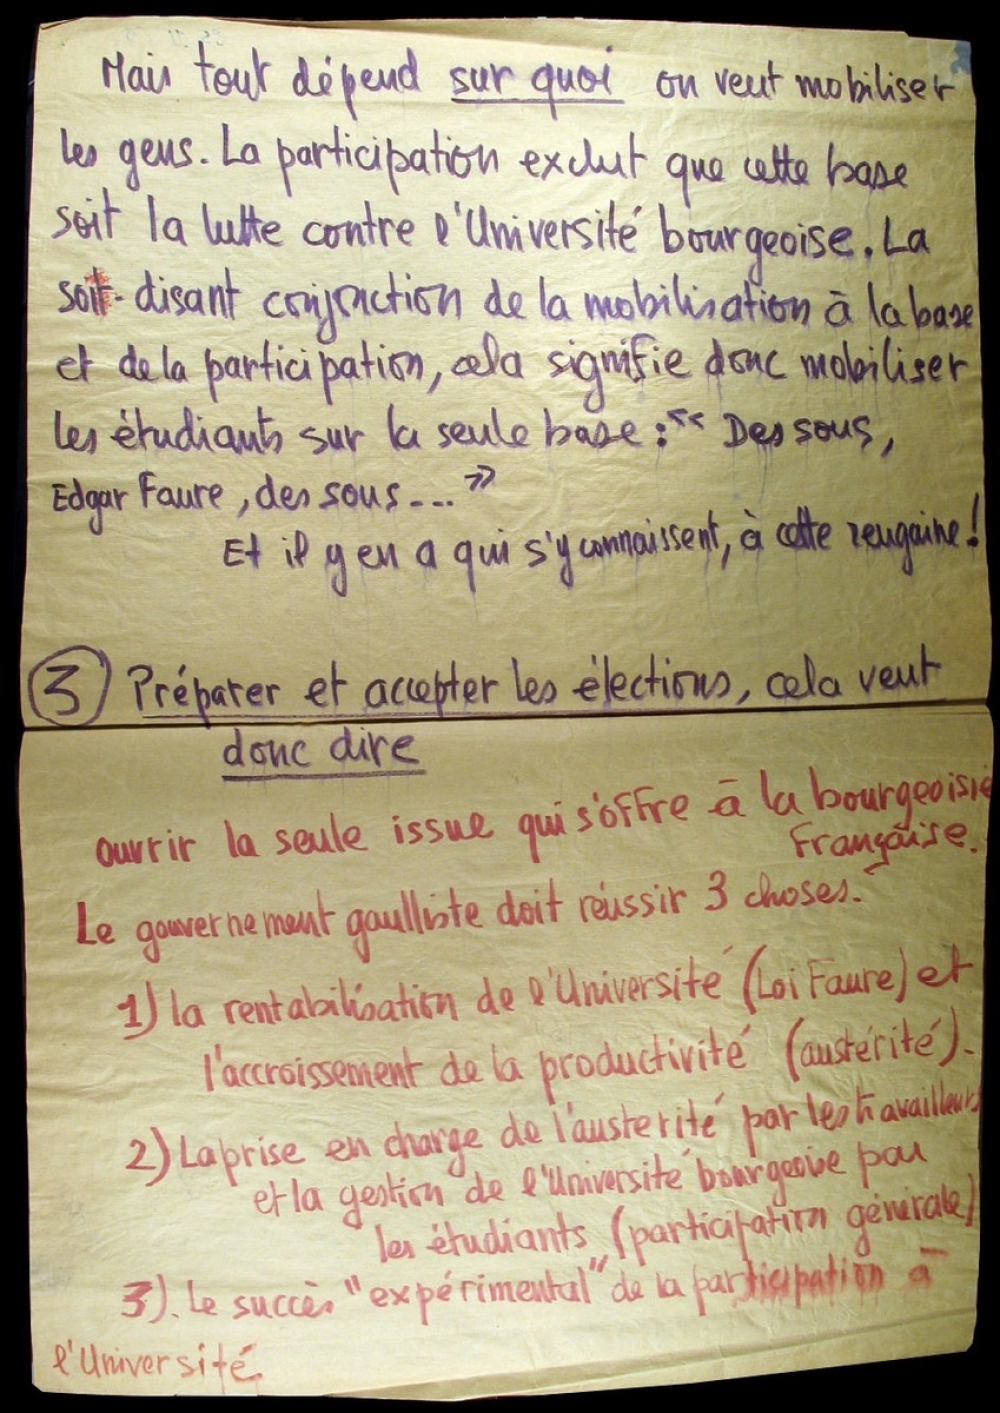 Mais tout dépend sur quoi on veut mobiliser
les gens. La participation exclut que cette base
soit la lutte contre l'Université bourgeoise. La
soit-disant conjonction de la mobilisation à la base
et de la participation, cela signifie donc mobiliser
les étudiants sur la seule base : “ Des sous,
Edgar Faure, des sous... ”
Et il y en a qui s'y connaissent, à cette rengaine !
3 Préparer et accepter les élections, cela veut
donc dire
ouvrir la seule issue qui s'offre à la bourgeoisie
Française.
Le gouvernement gaulliste doit réussir 3 choses.
1) la rentabilisation de l'Université (Loi Faure) et
l'accroissement de la productivité (austérité).
2) La prise en charge de l'austérité par les travailleurs
et la gestion de l'Université bourgeoise par
les étudiants (participation générale)
3). Le succès "expérimental" de la participation à
l'Université.